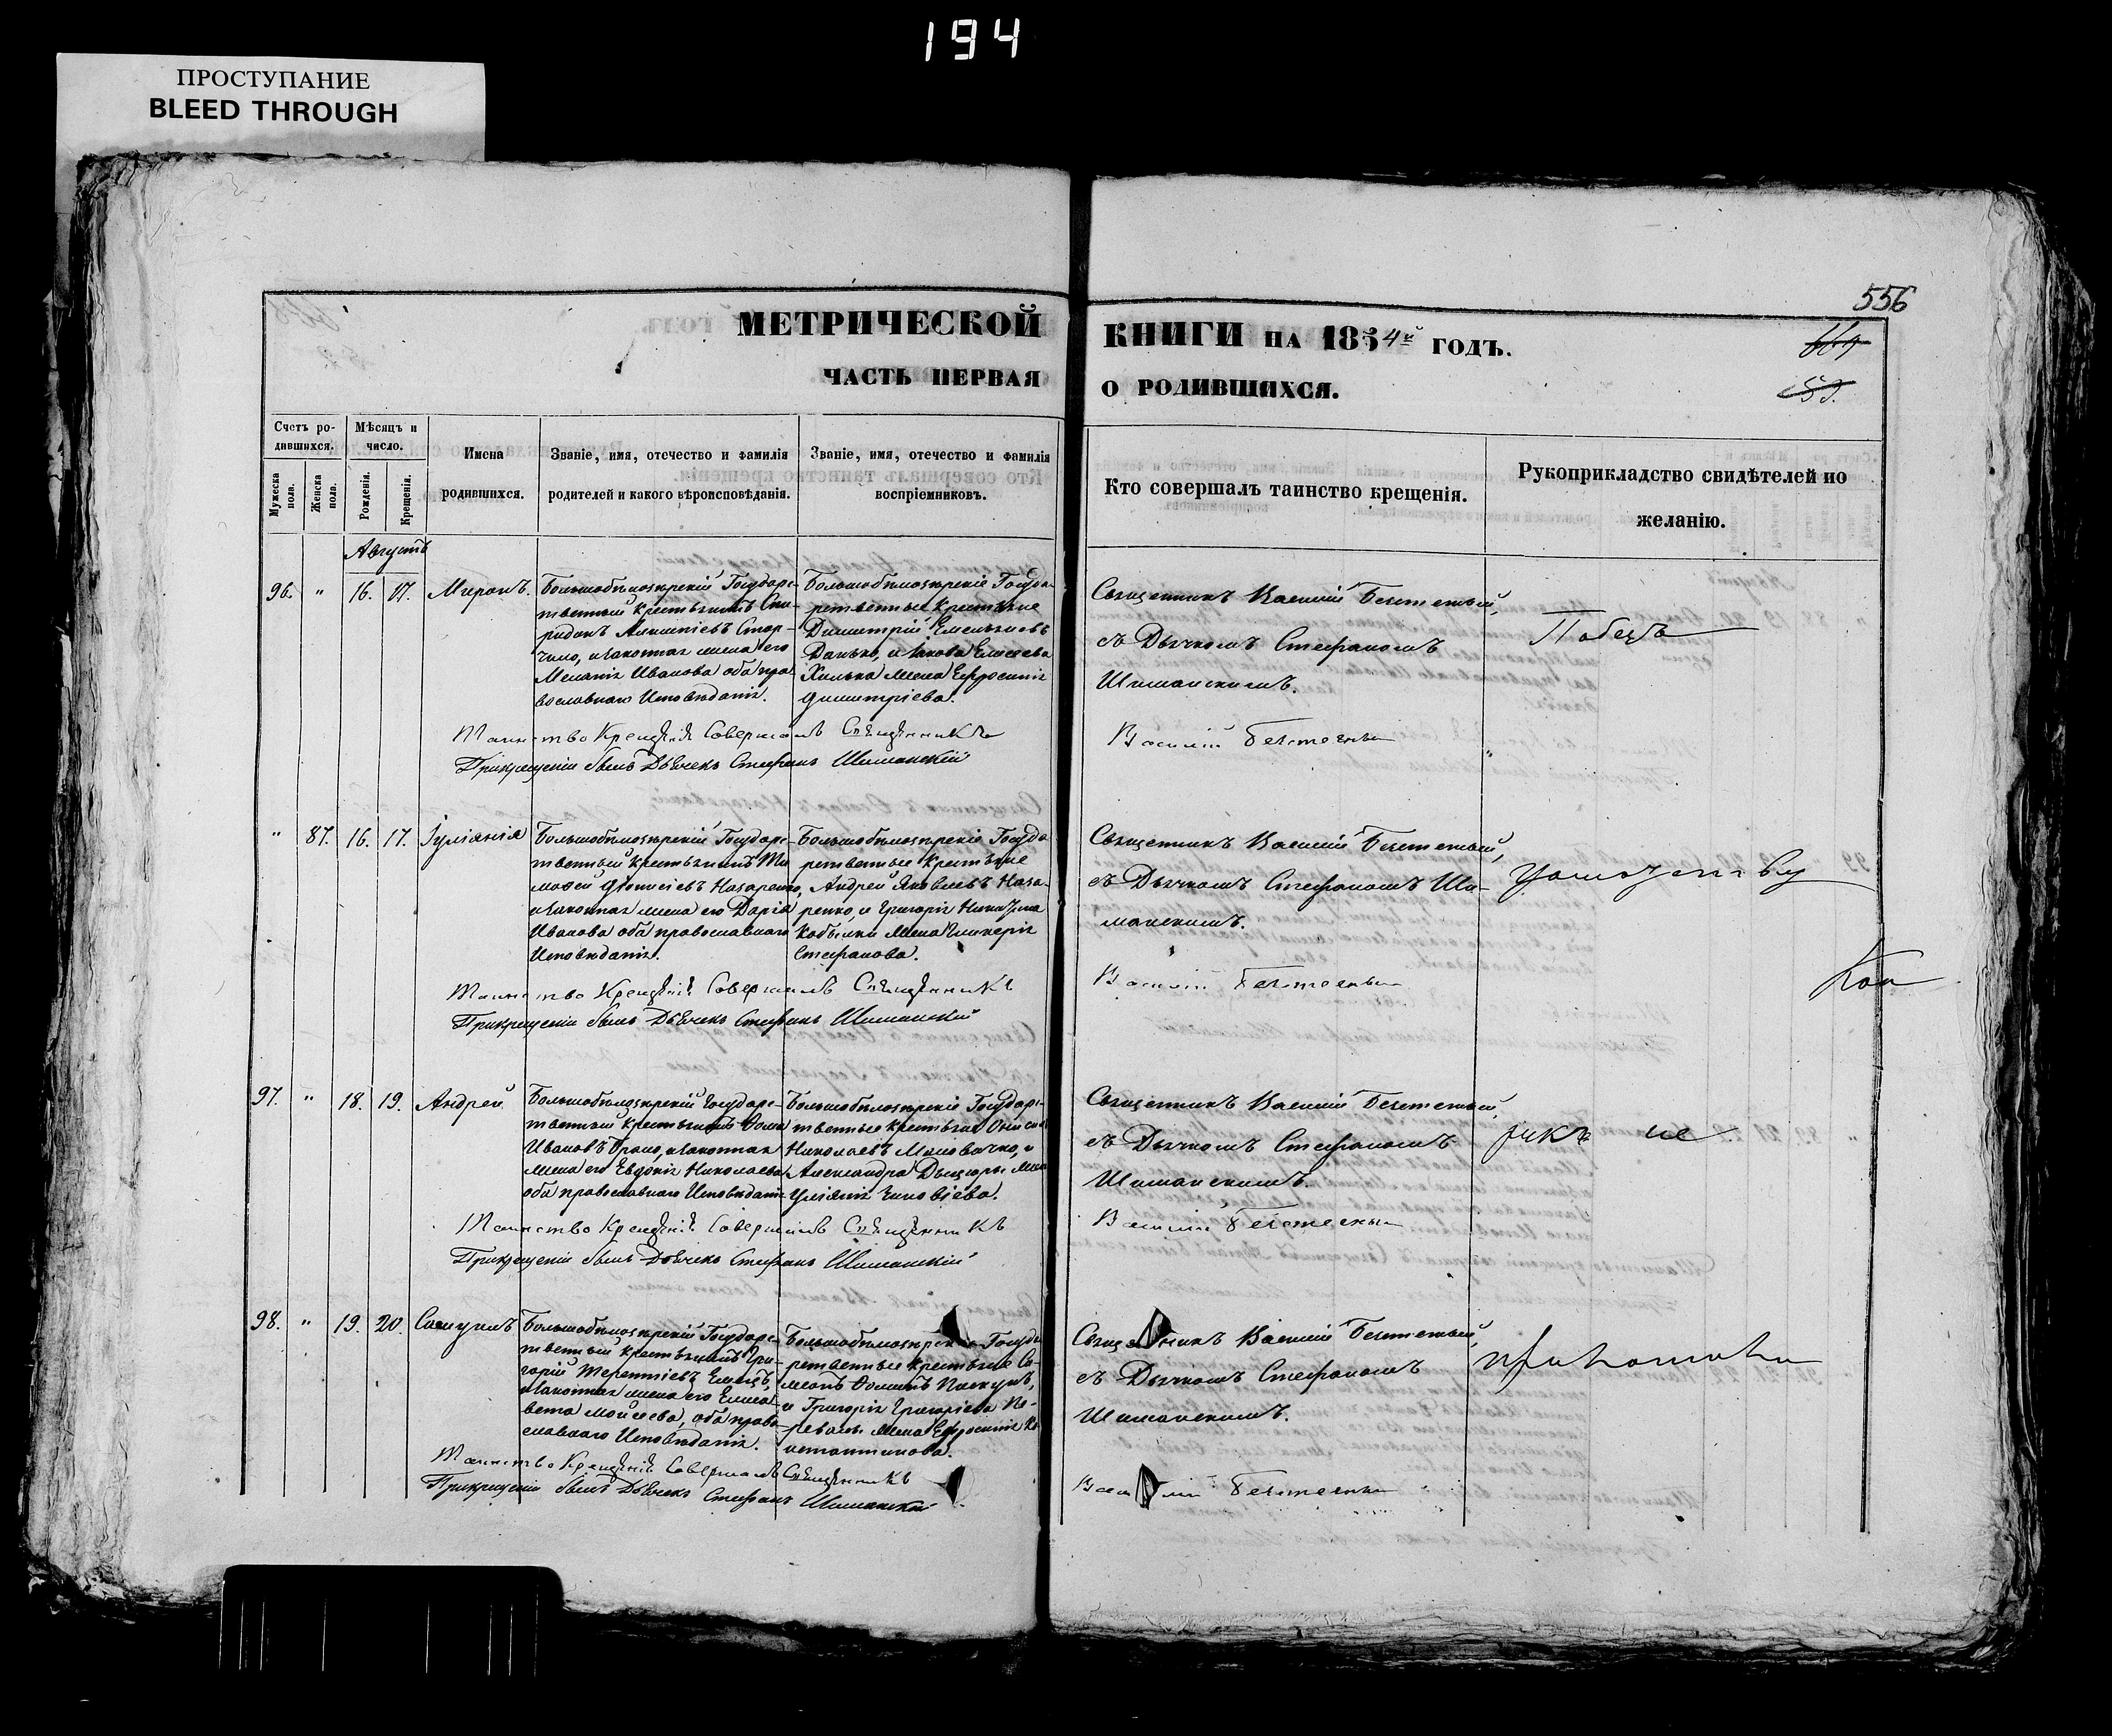 194
ПРОСТУПАНИЕ
BLEED THROUGH
556
МЕТРИЧЕСКОЙ КНИГИ НА 1854й ГОДЪ.
ЧАСТЬ ПЕРВАЯ О РОДИВШИХСЯ.
Счетъ родившихся.
Мужеска пола.
Женска пола.
Мѣсяцъ и число.
Рожденія.
Крещенія.
Имена родившихся.
Званіе, имя, отечество и фамилія родителей и какого вѣроисповѣданія.
Званіе, имя, отечество и фамилія воспріемниковъ.
Кто совершалъ таинство крещенія.
Рукоприкладство свидѣтелей по желанію.
Августъ
96. " 16. 17. Миронъ.
Большобѣлозѣрскій Государс-
твенный крестьянинъ Спи-
ридонъ
и законная жена его
Меланія Иванова оба пра-
вославнаго Исповѣданія.
Большобѣлозѣрскіе Госуда-
рственные крестьяне
Димитрій Емельяновъ
Данько, и Іакова Елисеева
Хилька жена Ефросинія
Димитріева.
Священникъ Василій
съ Дьячкомъ Стефаномъ
Шиманскимъ.
Таинство Крещенія Совершалъ Священникъ Василій
При крещеніи былъ Дьячекъ Стефанъ Шиманскій
" 87. 16. 17. Іуліанія
Большобѣлозѣрскій Государс-
твенный крестьянинъ Ти-
моѳей Діонисіевъ Назаренко,
и законная жена его Дарія
Иванова оба православнаго
Исповѣданія.
Большобѣлозѣрскіе Госуда-
рственные крестьяне
Андрей Яковлевъ Наза-
ренко, и Григорія
Кобылки жена Гликерія
Стефанова.
Священникъ Василій
съ Дьячкомъ Стефаномъ Ши-
манскимъ.
Таинство Крещенія Совершалъ Священникъ Василій
При крещеніи былъ Дьячекъ Стефанъ Шиманскій
97. " 18. 19. Андрей
Большобѣлозѣрскій Государс-
твенный крестьянинъ Ѳома
Ивановъ и законная
жена его Евдокія Николаева
оба православнаго Исповѣданія
Большобѣлозѣрскіе Государс-
твенные крестьяне
Николаевъ и
Александра жена
Священникъ Василій
съ Дьячкомъ Стефаномъ
Шиманскимъ.
Таинство Крещенія Совершалъ Священникъ Василій
При крещеніи былъ Дьячекъ Стефанъ Шиманскій
98. " 19. 20. Самуилъ
Большобѣлозѣрскій Государс-
твенный крестьянинъ Гри-
горій Терентіевъ Емецъ,
и законная жена его Елиса-
вета Моисеева, оба право-
славнаго Исповѣданія.
Большобѣлозѣрскіе Госуда-
рственные крестьяне Си-
меонъ Ѳоминъ
и Григорія Григоріева Пе-
жена Ефросинія Ко-
нстантинова.
Священникъ Василій
съ Дьячкомъ Стефаномъ
Шиманскимъ.
Таинство Крещенія Совершалъ Священникъ Василій
При крещеніи былъ Дьячекъ Стефанъ Шиманскій